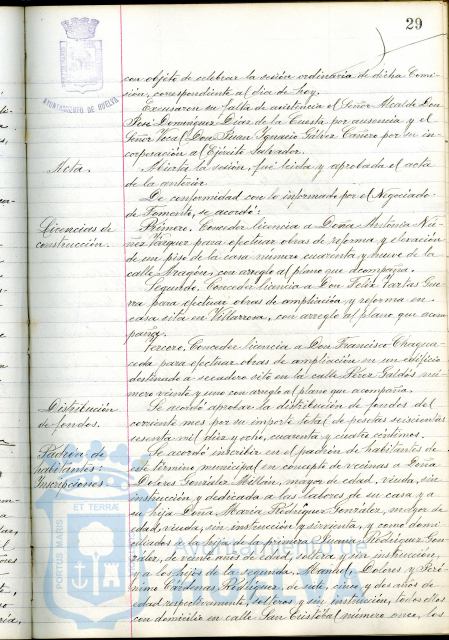 29
AYUNTAMIENTO DE HUELVA
con objeto de celebrar la sesión ordinaria de dicha Comi-
sión, correspondiente al día de hoy.
Excusaron su falta de asistencia el Señor Alcalde Don
José Domínguez Díaz de la Cuesta por ausencia y el
Señor Vocal Don Juan Ignacio Gálvez Cañero por su in-
corporación al Ejército Salvador.
Acta.
Abierta la sesión, fué leída y aprobada el acta
de la anterior.
De conformidad con lo informado por el Negociado
de Fomento, se acordó:
Licencias de
construcción.
Primero. Conceder licencia a Doña Antonia Nú-
ñez Vázquez para efectuar obras de reforma y elevación
de un piso de la casa número cuarenta y nueve de la
calle Aragón, con arreglo al plano que acompaña.
Segundo. Conceder licencia a Don Félix Vargas Gue-
rra para efectuar obras de ampliación y reforma en
casa sita en Villarrosa, con arreglo al plano que acom-
paña.
Tercero. Conceder licencia a Don Francisco
para efectuar obras de ampliación en un edificio
destinado a secadero sito en la calle Pérez Galdós nú-
mero veinte y uno con arreglo al plano que acompaña.
Distribución
de fondos.
Se acordó aprobar la distribución de fondos del
corriente mes por su importe total de pesetas seiscientas
sesenta mil diez y ocho, cuarenta y cuatro céntimos.
Padrón de
habitantes:
Inscripciones
Se acordó inscribir en el padrón de habitantes de
este término municipal en concepto de vecinas a Doña
Dolores González Millán, mayor de edad, viuda, sin
instrucción y dedicada a las labores de su casa y a
su hija Doña María Rodríguez González, mayor de
edad, viuda, sin instrucción y sirvienta, y como domi-
ciliados a la hija de la primera Juana Rodríguez Gon-
zález, de veinte años de edad, soltera y sin instrucción,
y a los hijos de la segunda, Manuel, Dolores y Jeró-
nimo Cárdenas Rodríguez, de siete, cinco y dos años de
edad respectivamente, solteros y sin instrucción, todos ellos
con domicilio en calle San Cristóbal número once, los
PORTUS MARIS ET TERRAE